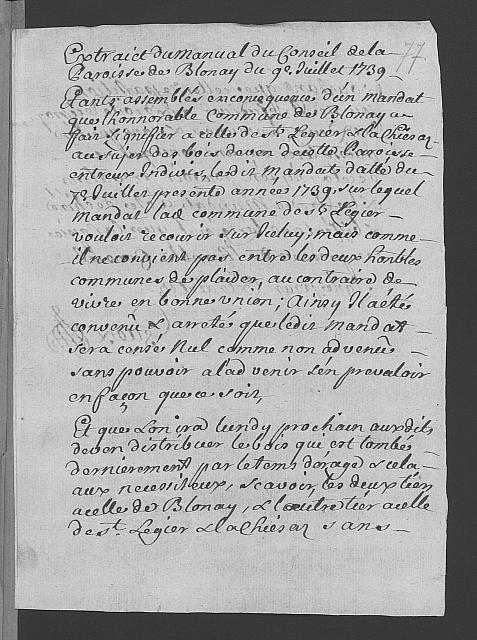 77
Extraict du manual du Conseil de la
Paroisse de Blonay du 9e. Juillet 1739
Etants assembles en consequence d'un mandat
que l'honnorable commune de Blonay a
fair signifier a celle de St. Legier & La Chiesaz
au sujet des bois deven de cette Paroisse
entreux Indivis, ledit mandat datté du
7e. Juillet presente année 1739. sur lequel
mandat lad. commune de St. Legier
vouloit recourir sur Iceluy; mais comme
il ne convient pas entre les deux honbles
communes de plaider, au contraire de
vivre en bonne union; Ainsy Il a été
convenû & arreté que ledit mandat
sera censé Nul comme non advenû
sans pouvoir a lad venir s'en prevaloir
en façon que ce soit,
Et que Lon ira lundy prochain aux dits
deven distribuer le bois qui est tombé
dernierement par le tems d'orage & cela
aux necessiteux, scavoir, les deux tier
a celle de Blonay, & l'autre tier a celle
de St. Legier & La Chiesaz sans